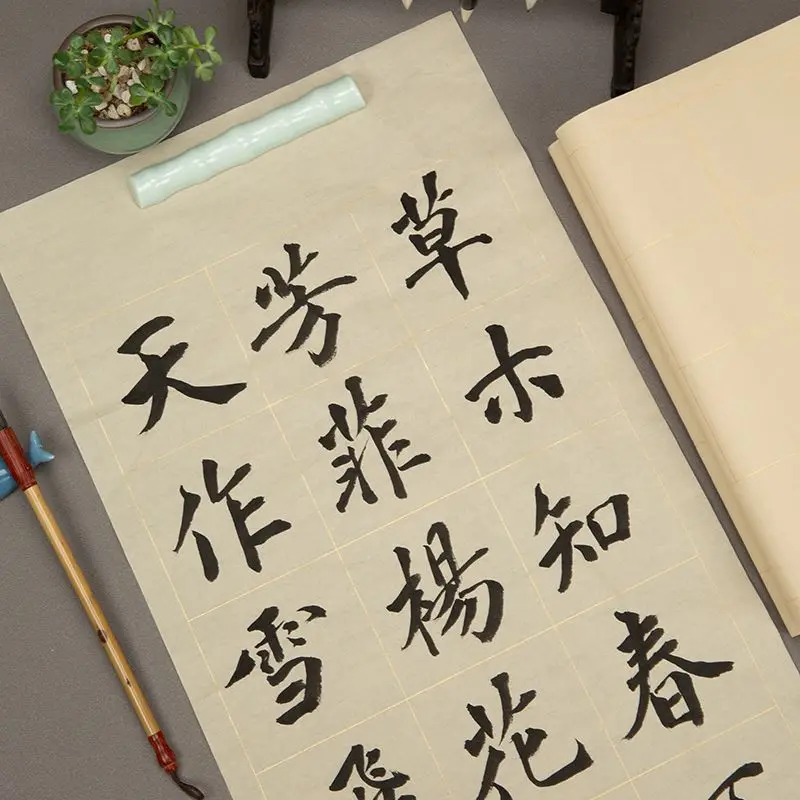 草木知春
芳菲楊花
天作雪飛